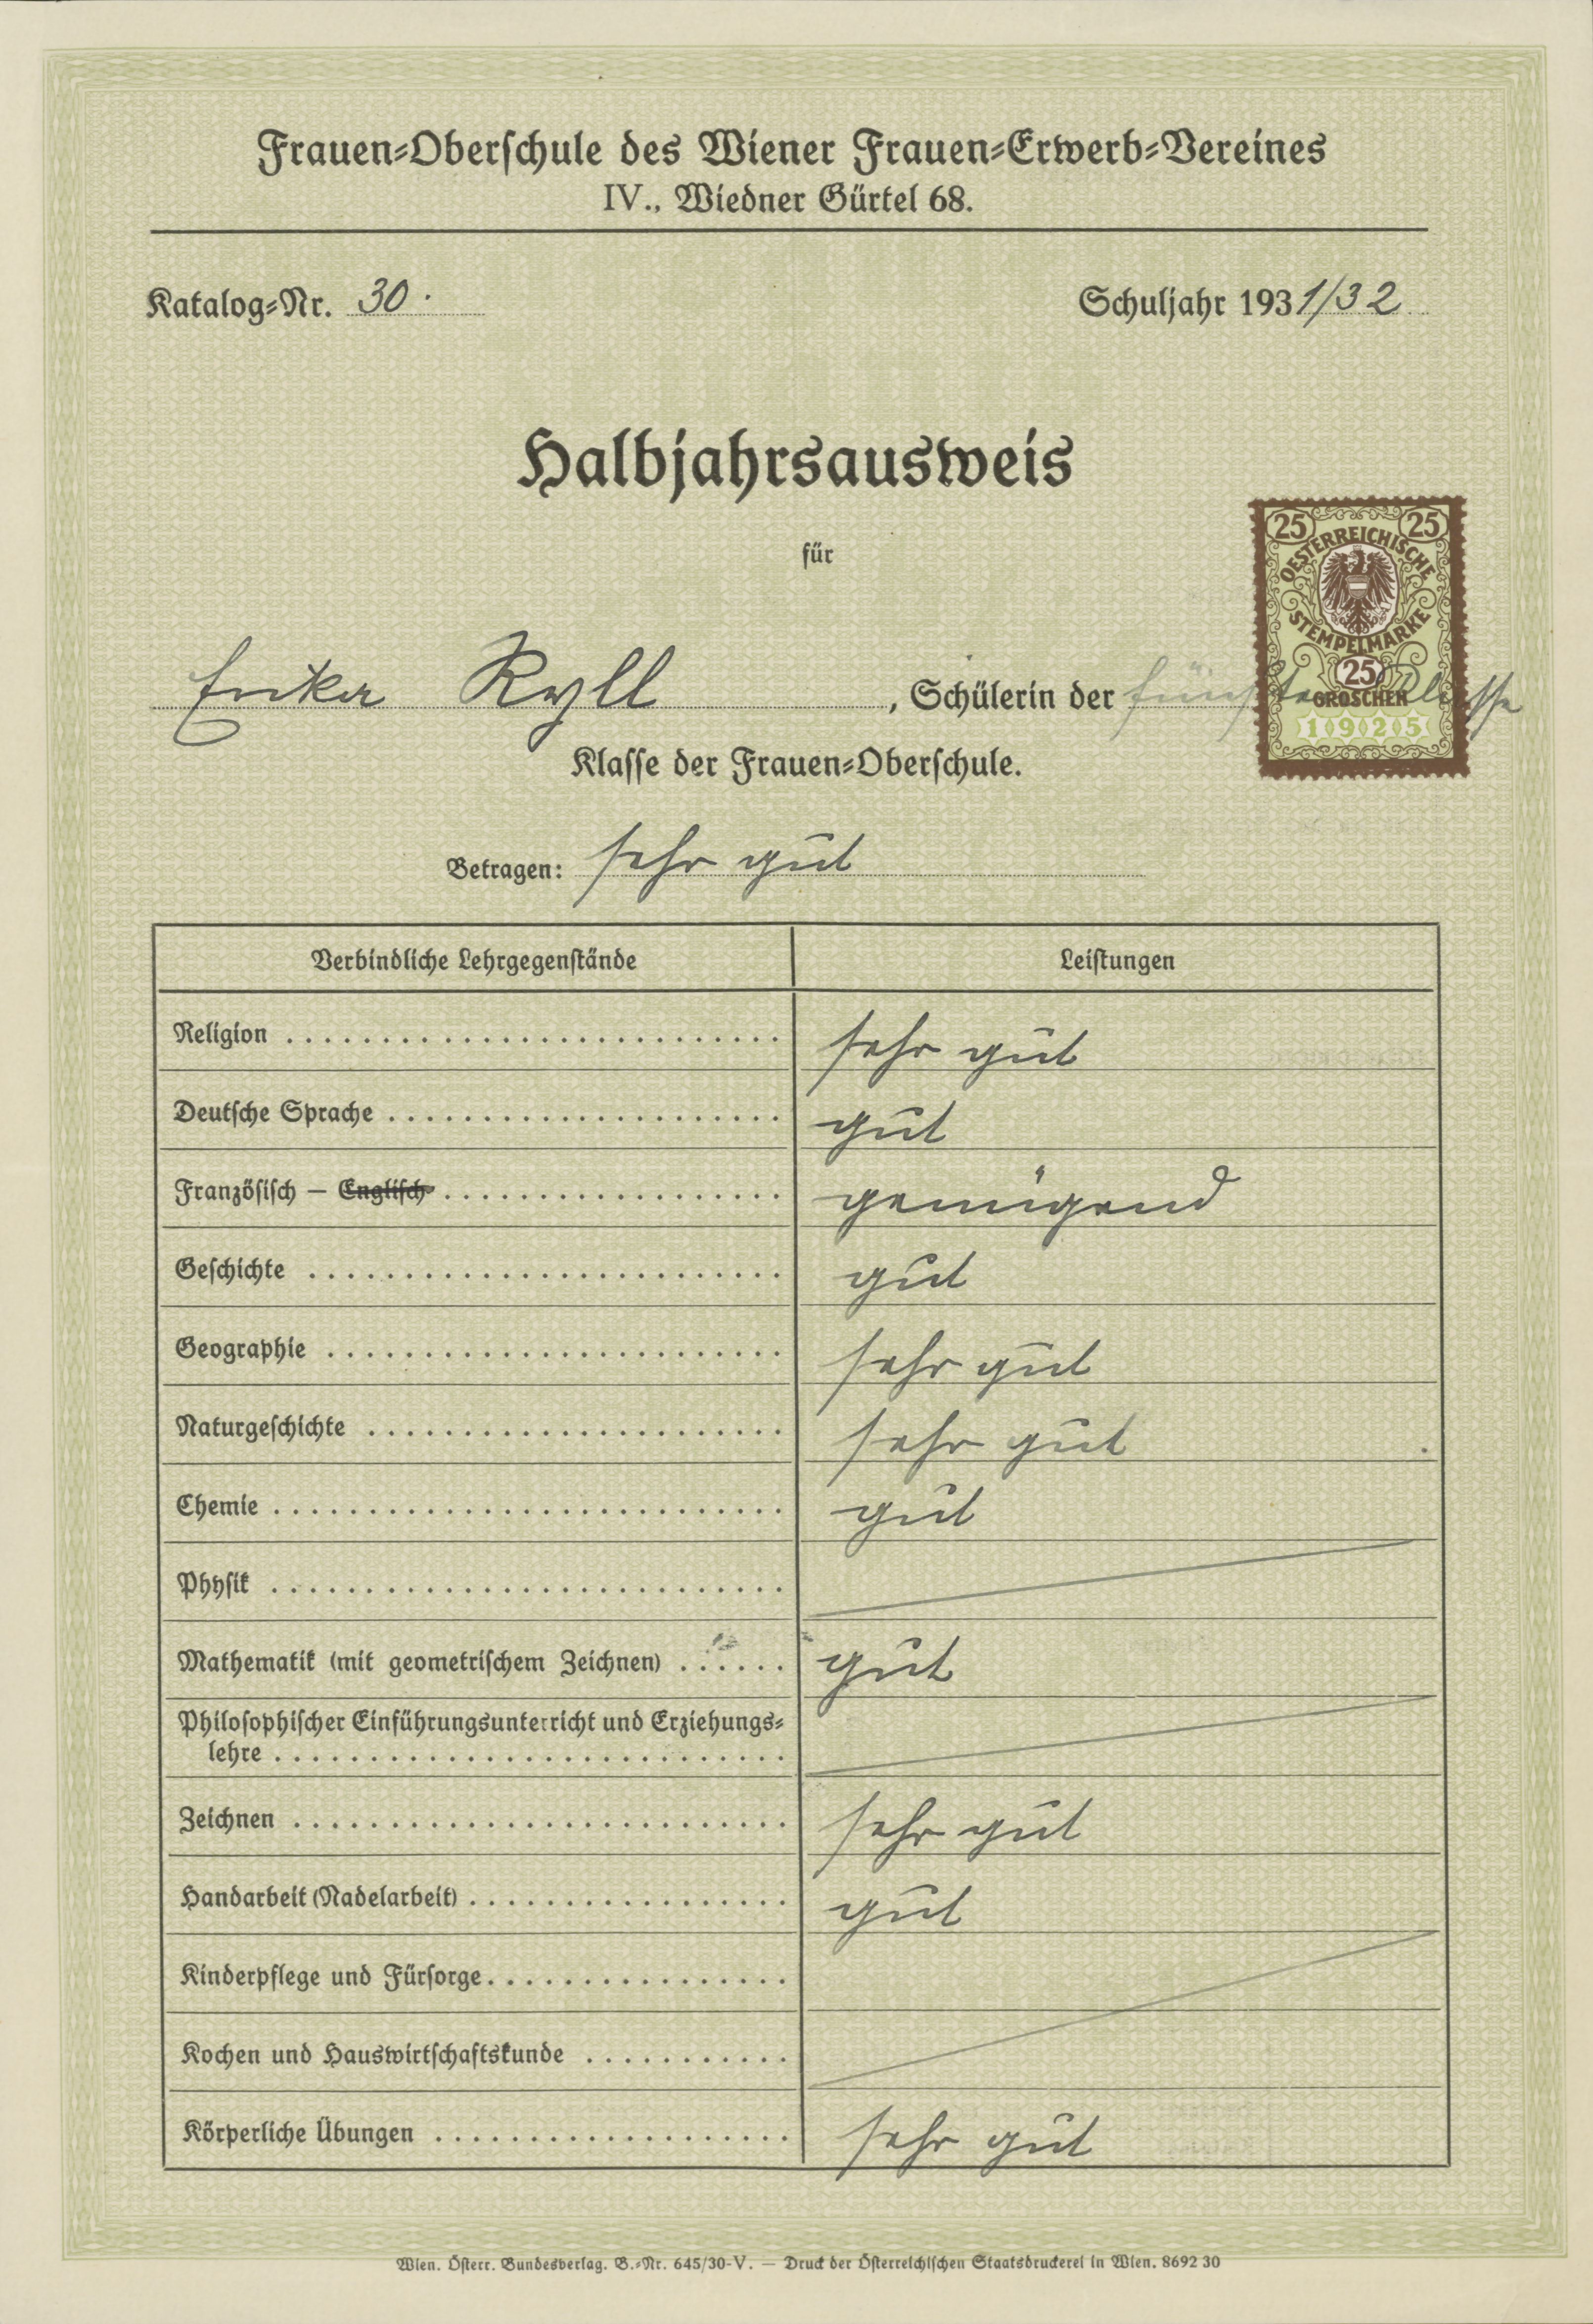 Frauen-Oberschule des Wiener Frauen-Erwerb-Vereines
IV., Wiedner Gürtel 68.
Katalog-Nr. 30.
Schuljahr 1931/32
Halbjahrsausweis
für
25 25
OESTERREICHISCHE
STEMPELMARKE
25
GROSCHEN
1925
Erika Ryll, Schülerin der fünften Klasse
Klasse der Frauen-Oberschule.
Betragen: sehr gut
Verbindliche Lehrgegenstände Leistungen
Religion sehr gut
Deutsche Sprache gut
Französisch — Englisch genügend
Geschichte gut
Geographie sehr gut
Naturgeschichte sehr gut
Chemie gut
Physik
Mathematik (mit geometrischem Zeichnen) gut
Philosophischer Einführungsunterricht und Erziehungs-
lehre
Zeichnen sehr gut
Handarbeit (Nadelarbeit) gut
Kinderpflege und Fürsorge
Kochen und Hauswirtschaftskunde
Körperliche Übungen sehr gut
Wien. Österr. Bundesverlag. B.-Nr. 645/30-V. — Druck der Österreichischen Staatsdruckerei in Wien. 8692 30